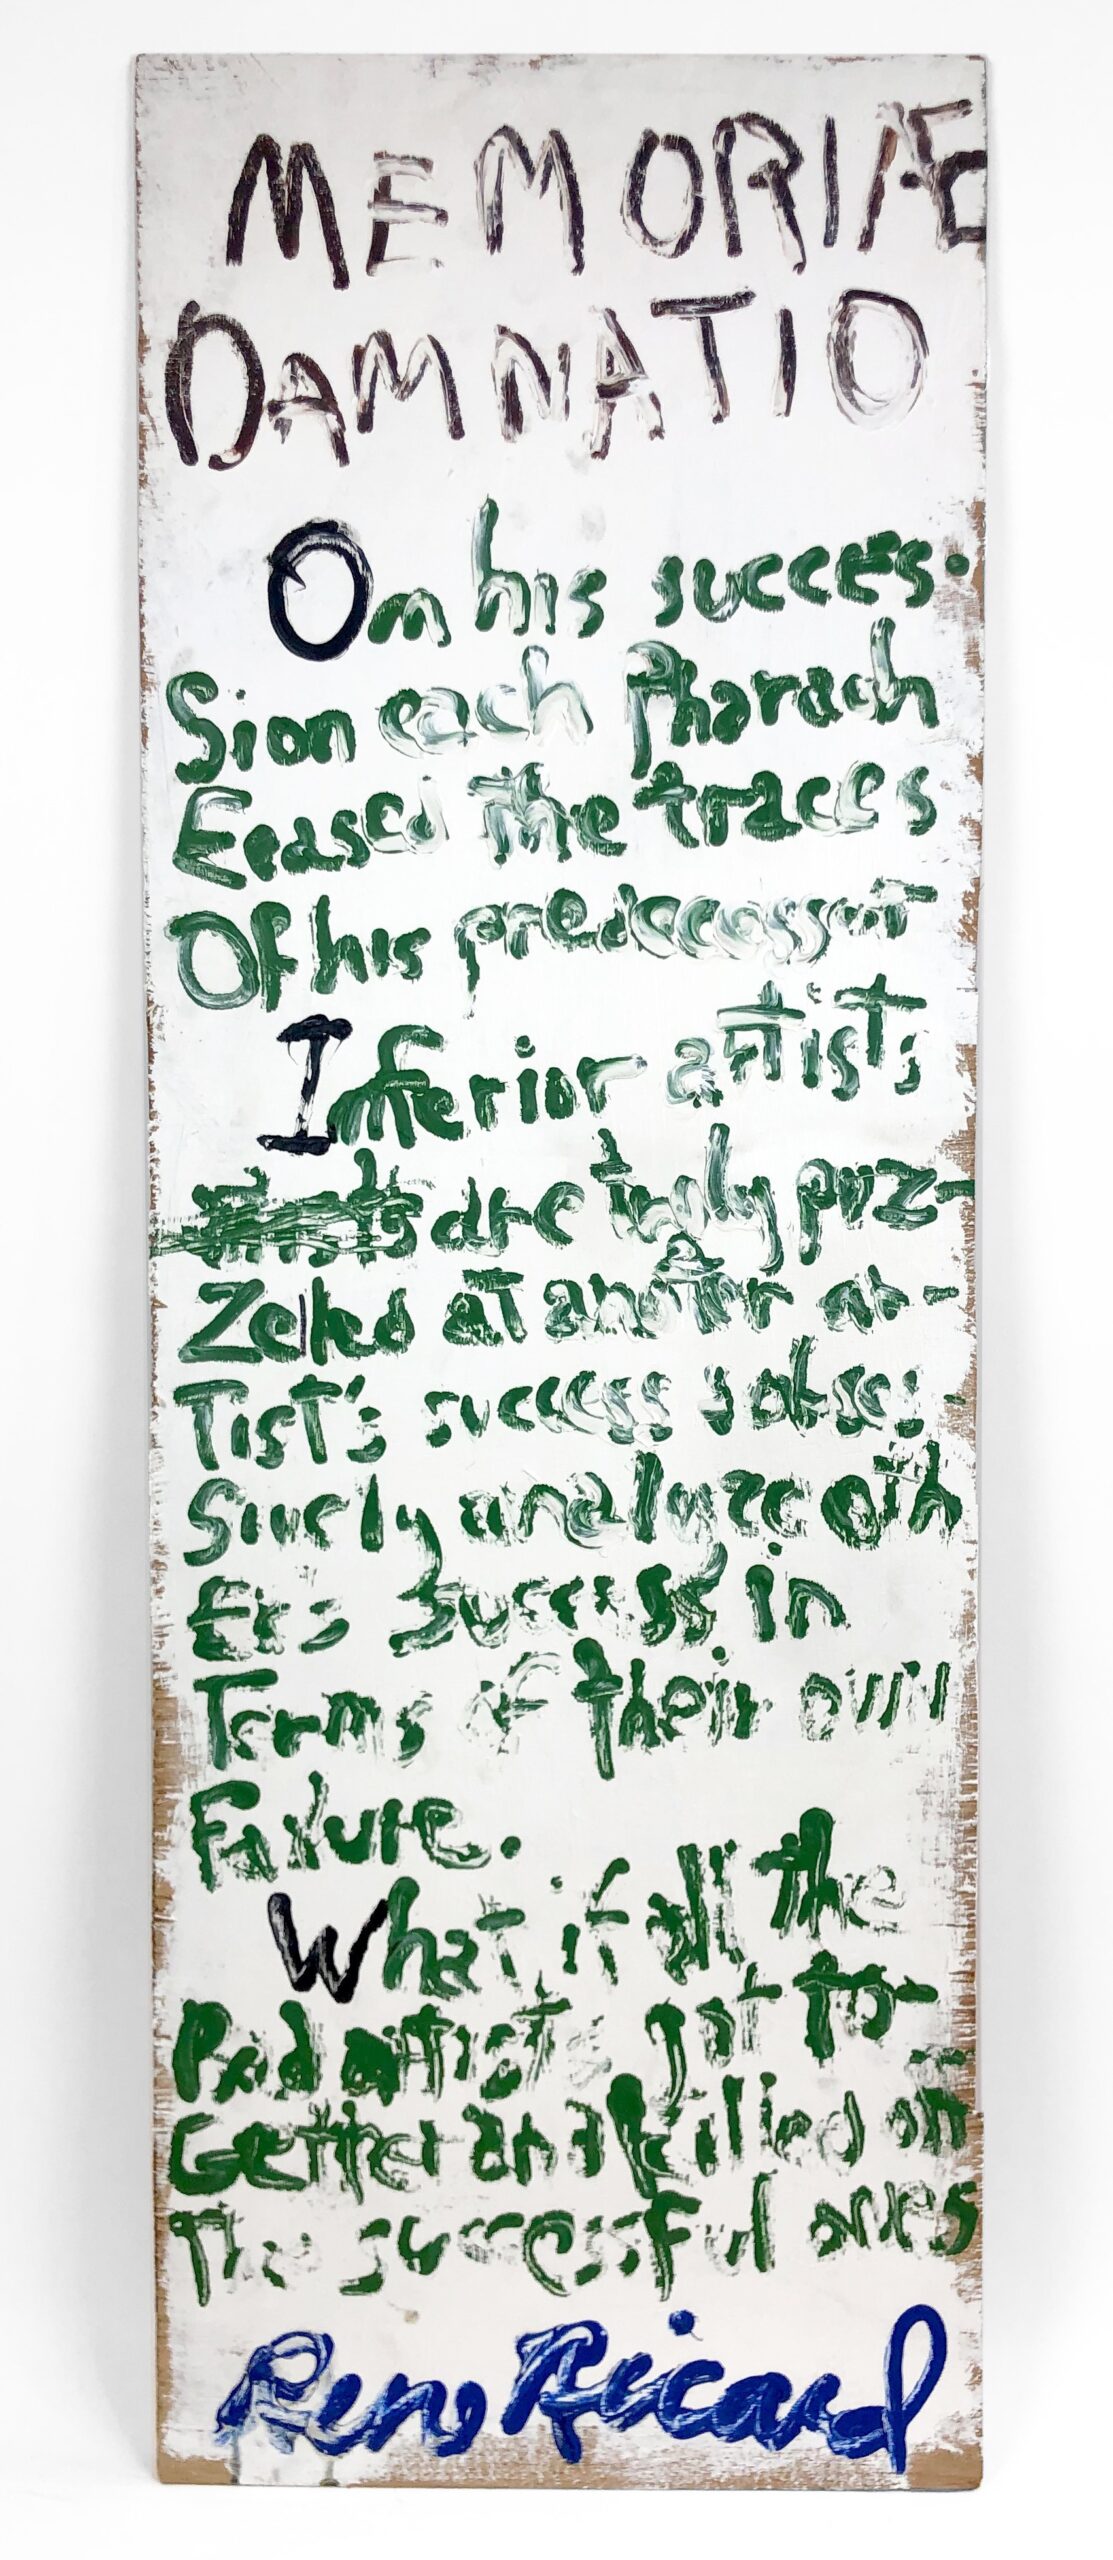 MEMORIÆ
DAMNATIO
On his succes-
Sion each Pharaoh
Erased the traces
Of his predecessor
Inferior artists
are truly puz-
Zelled at another ar-
Tist's success obses-
Sively analyze oth
Er's success in
Terms of their own
Failure.
What if all the
Bad artists got to-
Gether and killed off
The successful ones
Rene Ricard